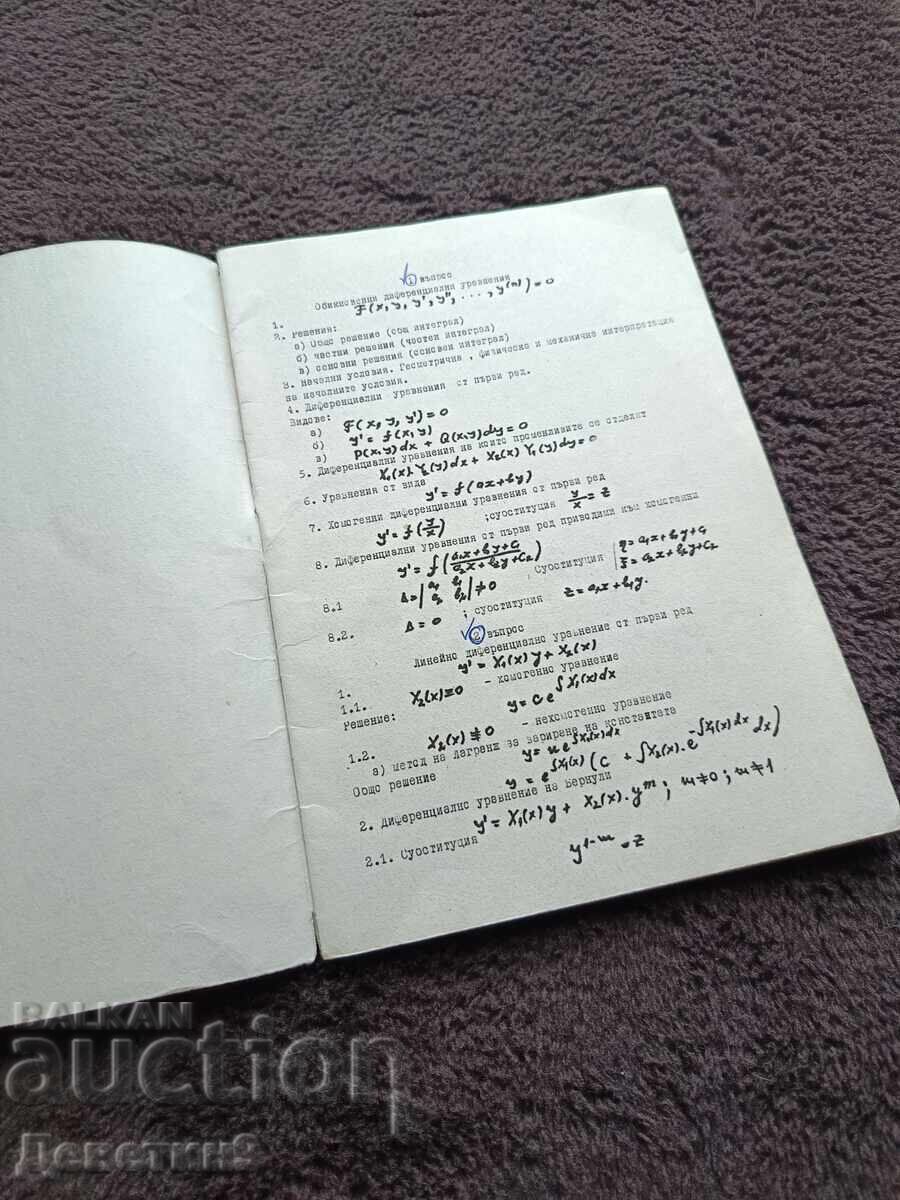 ① въпрос
Обикновени диференциални уравнения
1. F(x, y, y', y'', ..., y(n)) = 0
2. Решения:
а) Общо решение (общ интеграл)
б) частни решения (частен интеграл)
в) основни решения (основен интеграл)
3. Начални условия. Геометрична , физическа и механична интерпретация
на началните условия.
4. Диференциални уравнения от първи ред.
Видове:
а) F(x, y, y') = 0
б) y' = f(x, y)
в) P(x,y)dx + Q(x,y)dy = 0
5. Диференциални уравнения на които променливите се отделят
X₁(x).Y₂(y)dx + X₂(x)Y₁(y)dy = 0
6. Уравнения от вида
y' = f(ax+by)
7. Хомогенни диференциални уравнения от първи ред
y' = f(y/x) ;субституция y/x = z
8. Диференциални уравнения от първи ред приводими към хомогенни
y' = f((a₁x+b₁y+c₁)/(a₂x+b₂y+c₂))
8.1 Δ = |a₁ b₁ a₂ b₂| ≠ 0 Субституция | η = a₁x+b₁y+c₁ ξ = a₂x+b₂y+c₂
8.2. Δ = 0 ; субституция z = a₁x+b₁y.
② въпрос
Линейно диференциално уравнение от първи ред
1. y' = X₁(x)y + X₂(x)
1.1. X₂(x) ≡ 0 - хомогенно уравнение
Решение: y = ce^∫X₁(x)dx
1.2. X₂(x) ≢ 0 - нехомогенно уравнение
а) метод на Лагранж за вариране на константата
y = ue^∫X₁(x)dx
Общо решение y = e^∫X₁(x) (c + ∫X₂(x).e^-∫X₁(x)dx dx)
2. Диференциално уравнение на Бернули
y' = X₁(x)y + X₂(x).y^m ; m≠0 ; m≠1
2.1. Субституция y^1-m = z
BALKAN
auction
Деветин9